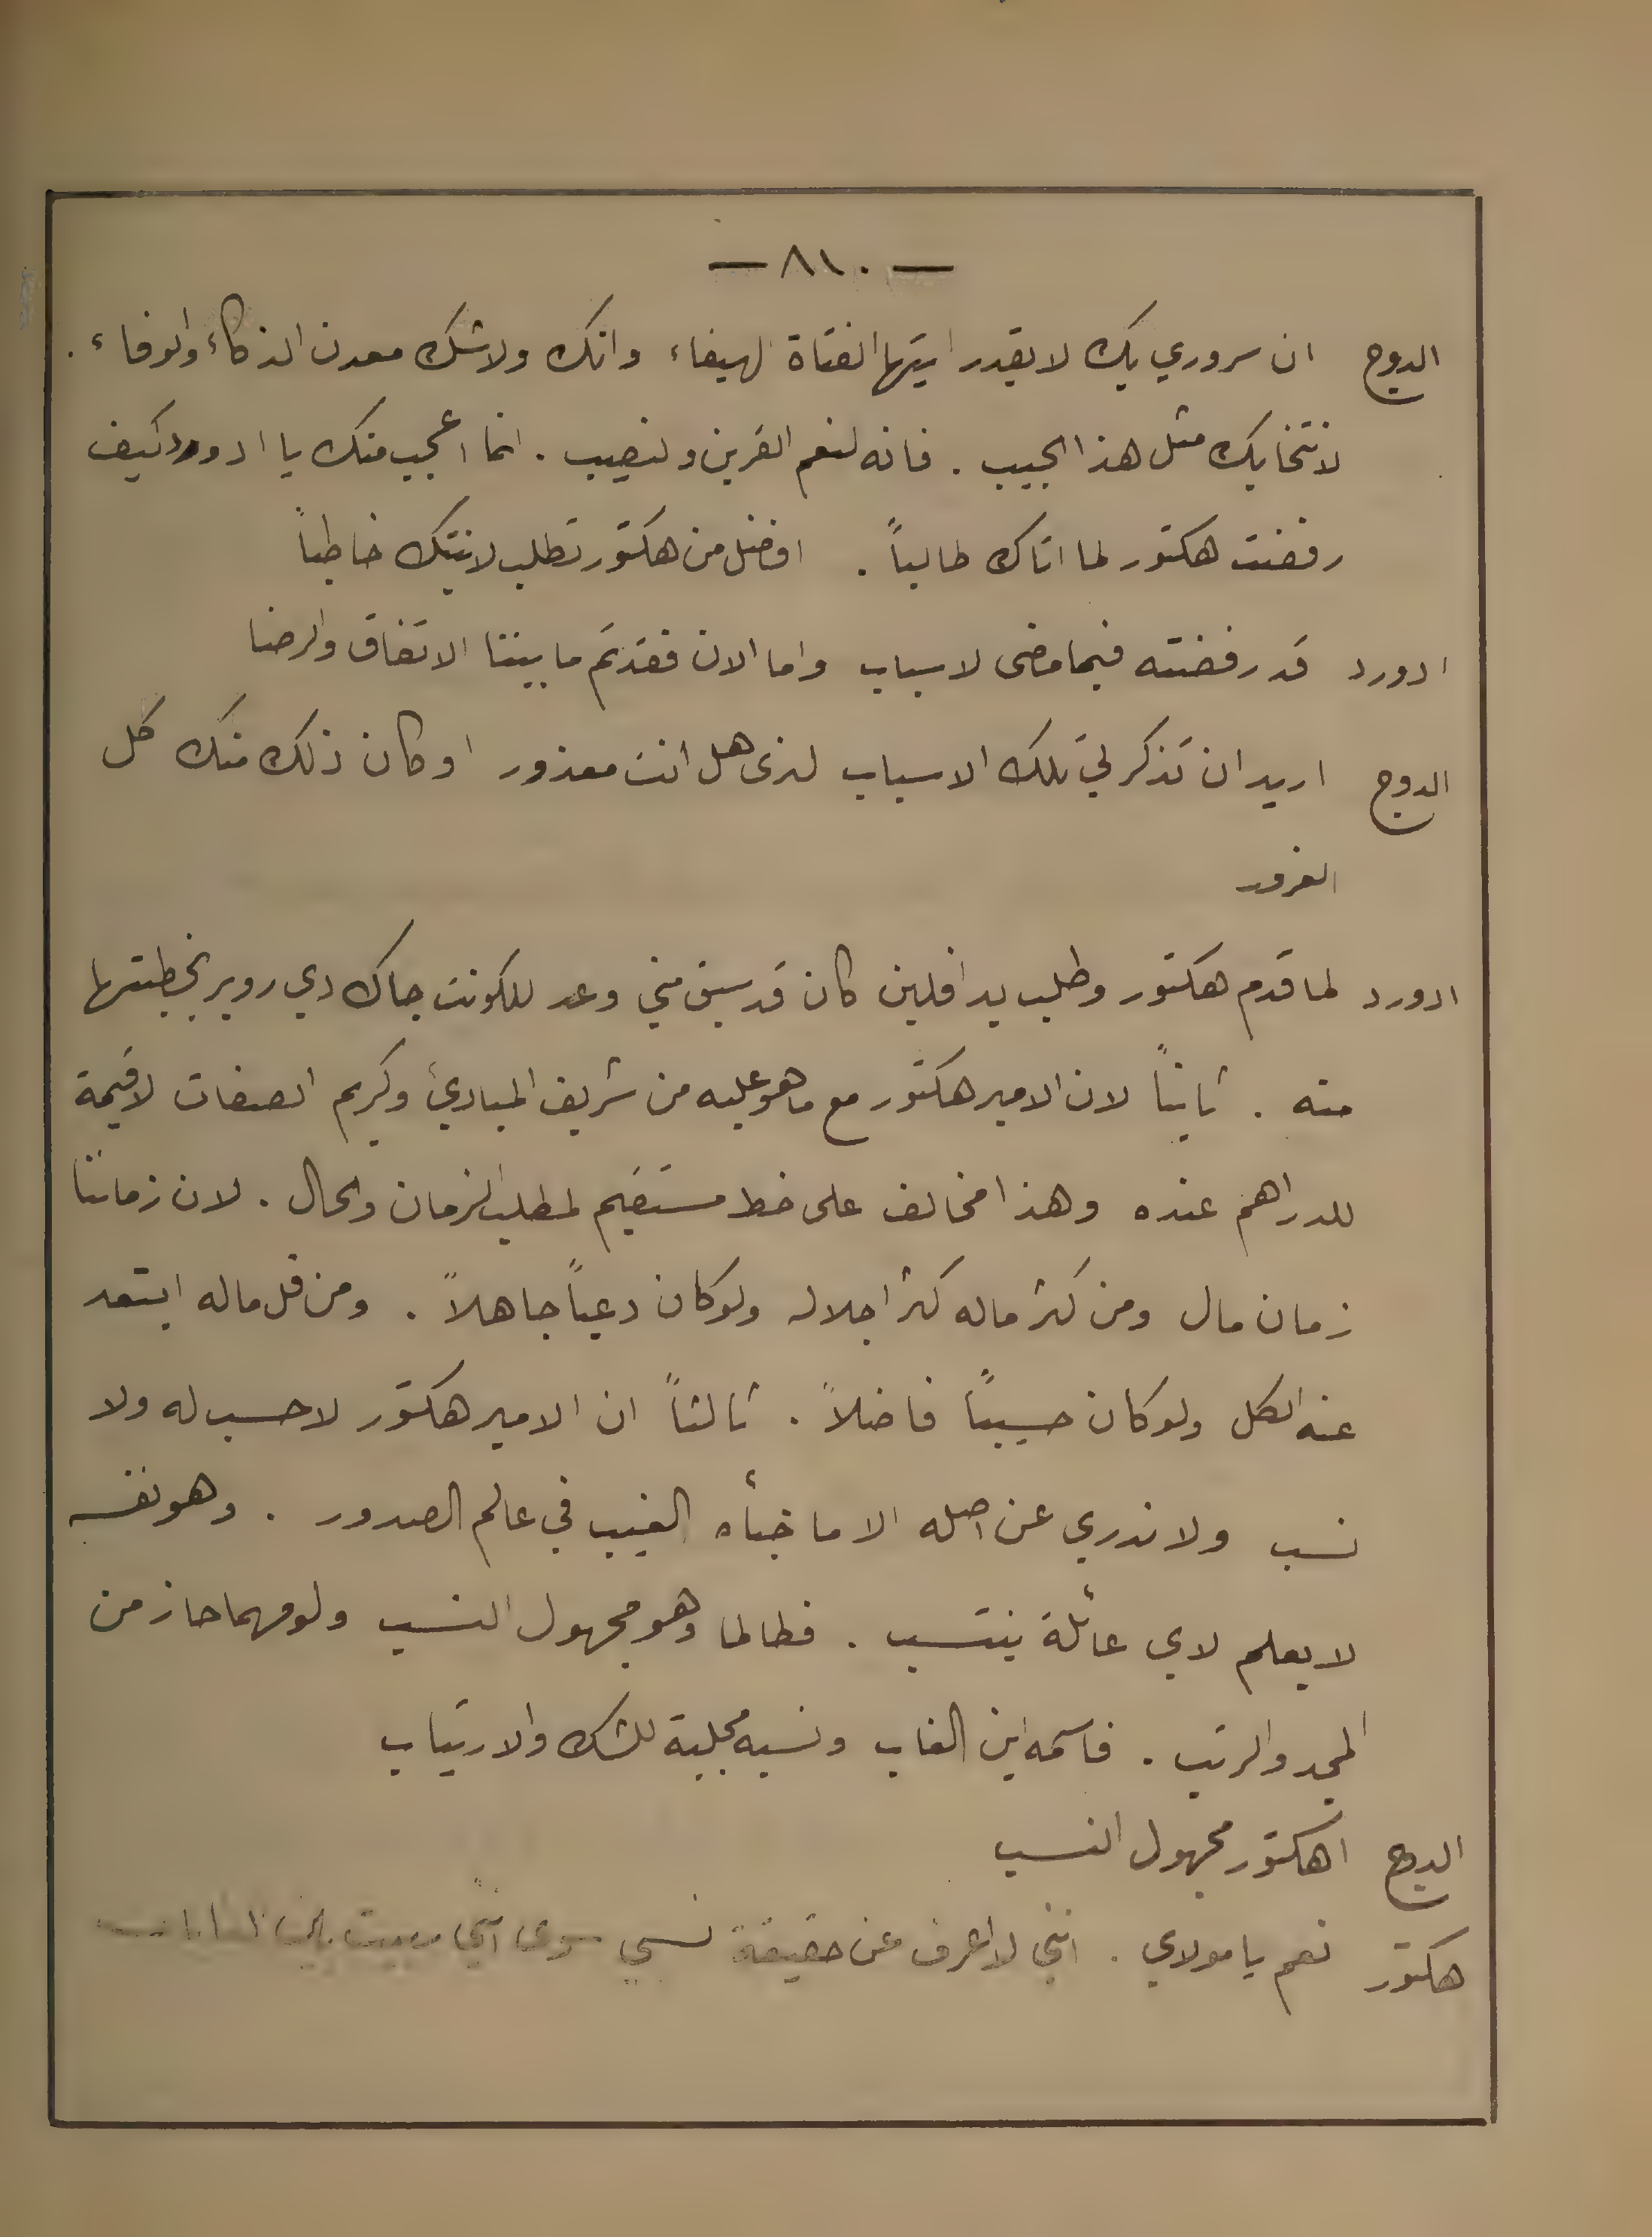 — ٨١٠ —
الدوج ان سروري بك لا يقدر ايتها الفتاة الهيفاء وانك ولا شك معدن الذكاء والوفاء .
لانتخابك مثل هذا الحبيب . فانه لنعم القرين والنصيب . انما اعجب منك يا ادورد كيف
رفضت هكتور لما اتاك طالباً . افضل من هكتور تطلب لابنتك خاطباً
ادورد قد رفضته فيما مضى لاسباب واما الان فقد تم ما بيننا الاتفاق والرضا
الدوج اريد ان تذكر لي تلك الاسباب لنرى هل انت معذور او كان ذلك منك كل
الغرور
ادورد لما قدم هكتور وطلب يد افلين كان قد سبق مني وعد للكونت جاك دي روبر بخطبتها
منه . ثانياً لان الامير هكتور مع ما هو عليه من شريف المبادئ وكريم الصفات لا قيمة
للدراهم عنده وهذا مخالف على خط مستقيم لمطلب الزمان والحال . لان زماننا
زمان مال ومن كثر ماله كثر اجلاله ولو كان دعياً جاهلاً . ومن قل ماله ابتعد
عنه الكل ولو كان حسيباً فاضلاً . ثالثاً ان الامير هكتور لا حسب له ولا
نسب ولا ندري عن اصله الا ما خبأه الغيب في عالم الصدور . وهو نفسه
لا يعلم لاي عائلة ينتسب . فطالما وهو مجهول النسب ولو مهما حاز من
المجد والرتب . فاسمه ابن الغاب ونسبه مجلبة للشك والارتياب
الدوج اهكتور مجهول النسب
هكتور نعم يا مولاي . انني لا اعرف عن حقيقة نسبي سوى انني ربيت بين الغابات